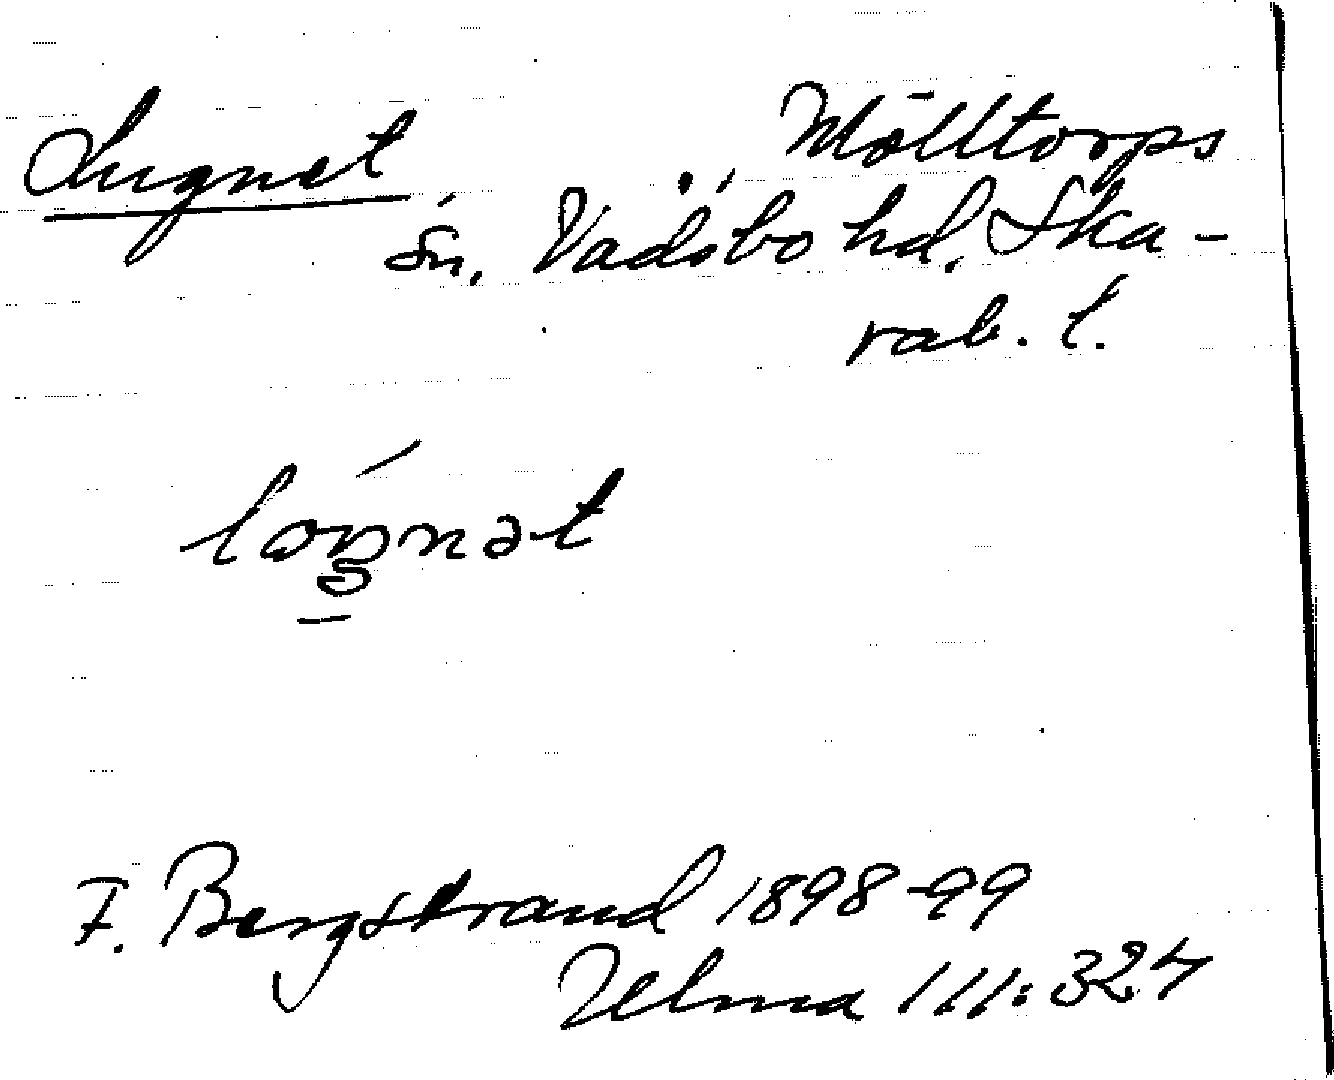 Lugnet Mölltorps
sn. Vadsbo hd. Ska-
rab. l.
F. Bergstrand 1898-99
Ulma 111:324